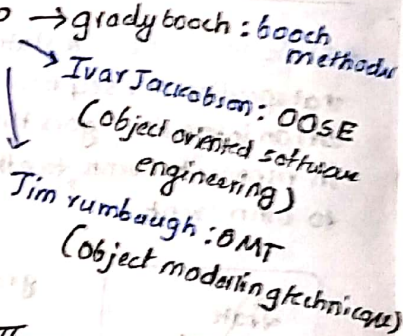 → grady booch : booch
methods
→ Ivar Jackobson : OOSE
(object oriented software
engineering)
Jim rumbaugh : OMT
(Object modelling technique)